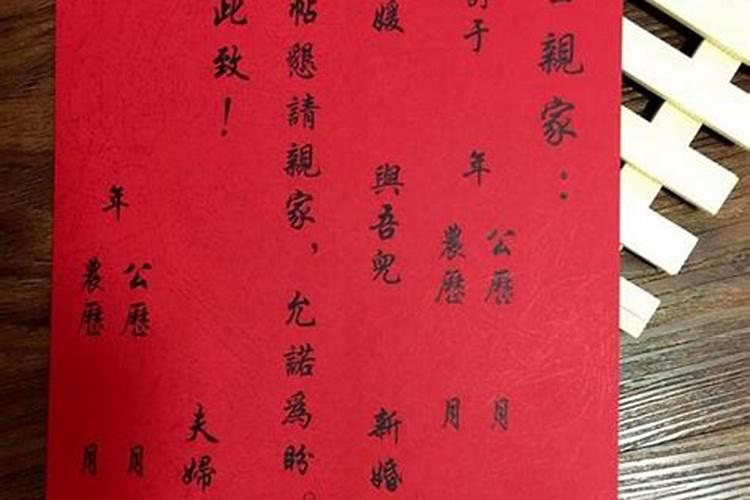 親家：
于 年 公歷 月
農歷 月
媛 與吾兒 新婚
帖懇請親家，允諾為盼。
此致！
夫婦
年 公歷 月
農歷 月